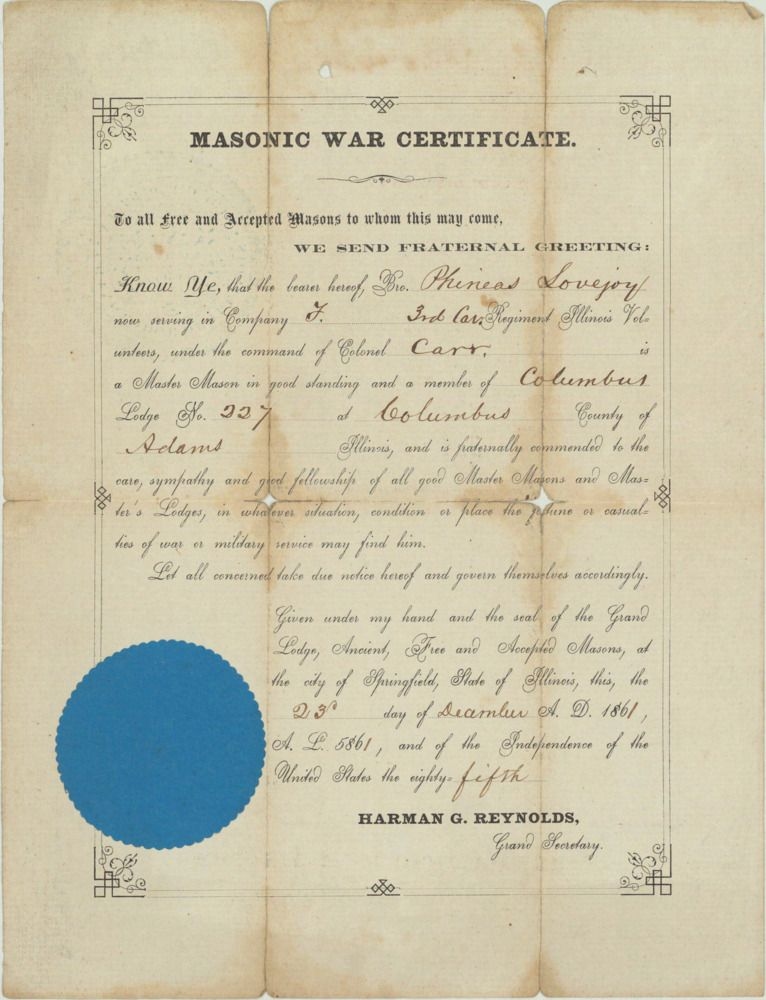 MASONIC WAR CERTIFICATE.
To all Free and Accepted Masons to whom this may come,
WE SEND FRATERNAL GREETING:
Know Ye, that the bearer hereof, Bro. Phineas Lovejoy
now serving in Company F. 3rd Cav. Regiment Illinois Vol=
unteers, under the command of Colonel Carr. is
a Master Mason in good standing and a member of Columbus
Lodge No. 227 at Columbus County of
Adams Illinois, and is fraternally commended to the
care, sympathy and good fellowship of all good Master Masons and Mas=
ter's Lodges, in whatever situation, condition or place the fortune or casual=
ties of war or military service may find him.
Let all concerned take due notice hereof and govern themselves accordingly.
Given under my hand and the seal of the Grand
Lodge, Ancient, Free and Accepted Masons, at
the city of Springfield, State of Illinois, this, the
23d day of December A. D. 1861,
A. L. 5861, and of the Independence of the
United States the eighty=fifth
HARMAN G. REYNOLDS,
Grand Secretary.